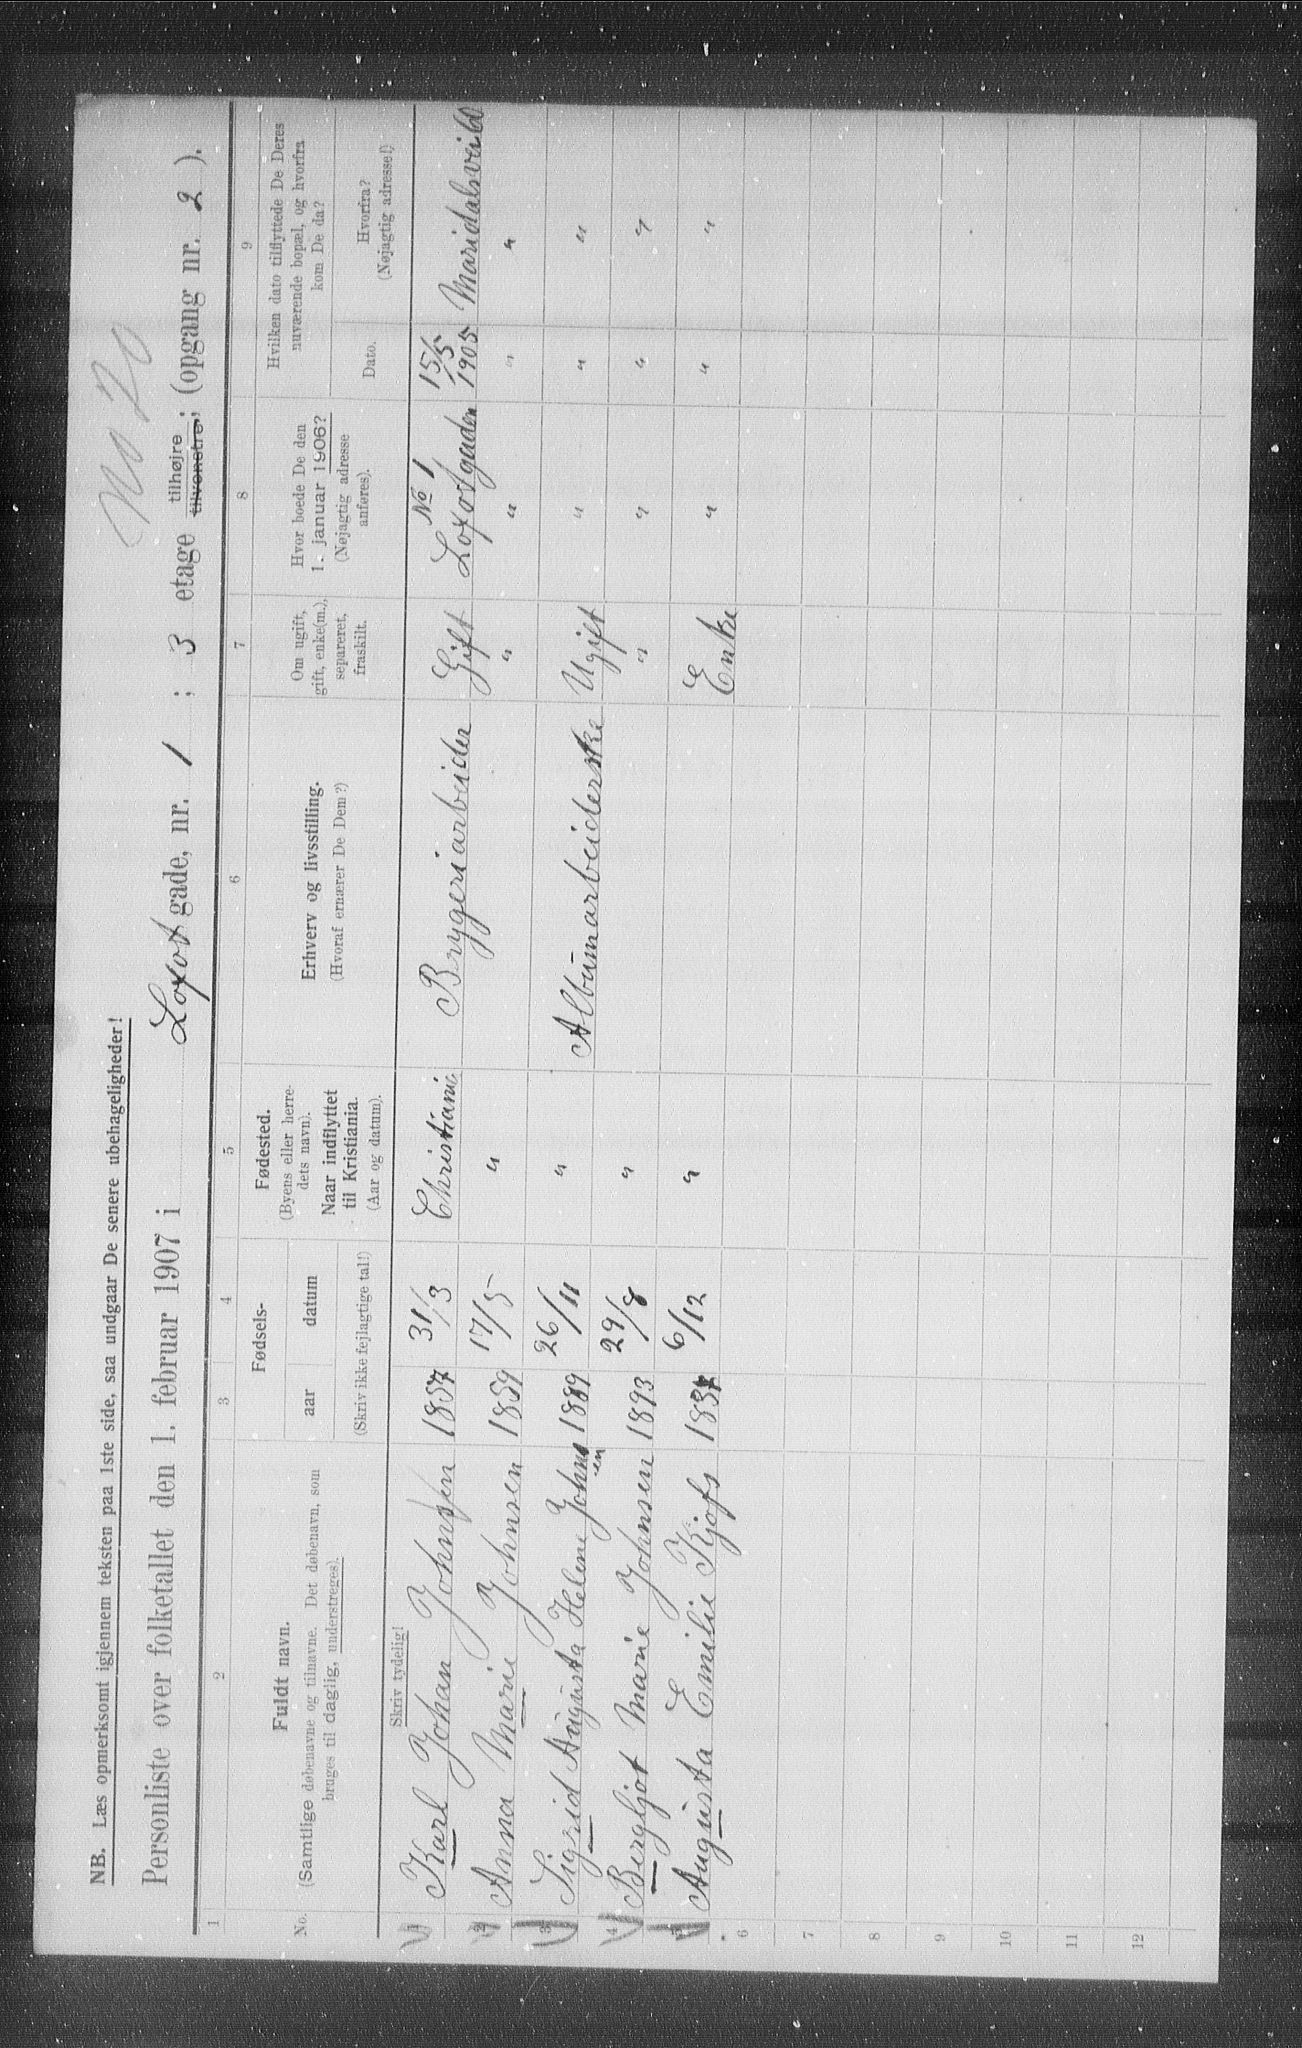 No 20
NB. Læs opmerksomt igjennem teksten paa 1ste side, saa undgaar De senere ubehageligheder!
Personliste over folketallet den 1. februar 1907 i Lofot gade, nr. 1 ; 3 etage tilhøjre tilvenstre; (opgang nr. 2 ).
1 2 3 4 5 6 7 8 9
No.
Fuldt navn.
(Samtlige døbenavne og tilnavne. Det døbenavn, som
bruges til daglig, understreges).
Fødsels-
aar datum
(Skriv ikke fejlagtige tal!)
Fødested.
(Byens eller herre-
dets navn).
Naar indflyttet
til Kristiania.
(Aar og datum).
Erhverv og livsstilling.
(Hvoraf ernærer De Dem?)
Om ugift,
gift, enke(m.),
separeret,
fraskilt.
Hvor boede De den
1. januar 1906?
(Nøjagtig adresse
anføres).
Hvilken dato tilflyttede De Deres
nuværende bopæl, og hvorfra
kom De da?
Dato.
Hvorfra?
(Nøjagtig adresse!)
Skriv tydelig!
1 Karl Johan Johnsen 1857 31/3 Christiania Brygeriarbeider Gift No 1 Lofotgaden 15/5 1905 Maridalsvei
2 Anna Marie Johnsen 1859 17/5 " " " " "
3 Sigrid Augusta Helene Johnsen 1889 26/11 " Albumarbeiderske Ugift " " "
4 Bergljot Marie Johnsen 1893 29/8 " " " " "
5 Augusta Emilie Kjofs 1837 6/12 " Enke " " "
6
7
8
9
10
11
12